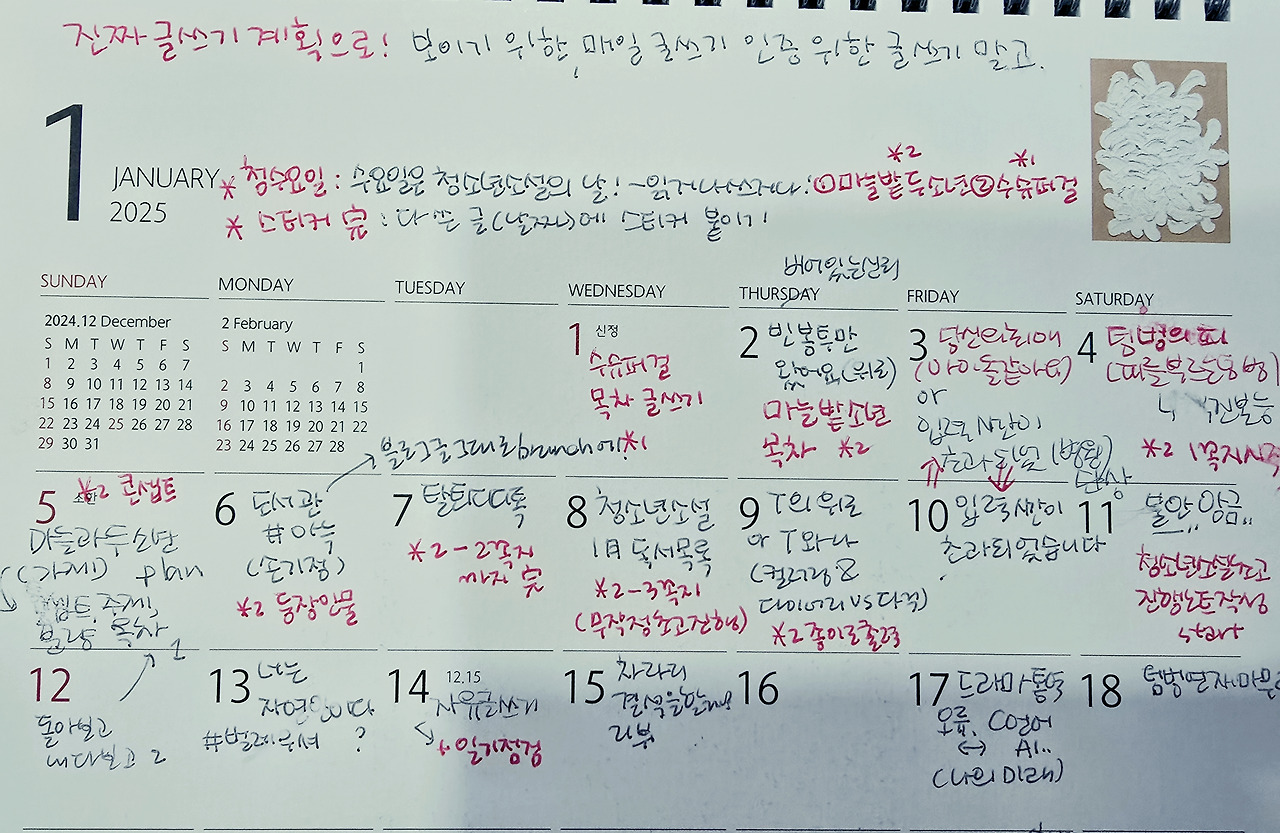 진짜 글쓰기 계획으로! 보이기 위한, 매일 글쓰기 인증 위한 글쓰기 말고.
1
JANUARY
2025
*2 *1
* 청수요일 : 수요일은 청소년소설의 날! - 읽거나 쓰거나! ①마늘밭 두 소년 ②수슈퍼걸
* 스티커 完 : 다 쓴 글(날짜)에 스티커 붙이기
SUNDAY MONDAY TUESDAY WEDNESDAY THURSDAY FRIDAY SATURDAY
2024.12 December
S M T W T F S
1 2 3 4 5 6 7
8 9 10 11 12 13 14
15 16 17 18 19 20 21
22 23 24 25 26 27 28
29 30 31
2 February
S M T W T F S
1
2 3 4 5 6 7 8
9 10 11 12 13 14 15
16 17 18 19 20 21 22
23 24 25 26 27 28
1 신정
수슈퍼걸
목차 글쓰기
*1
2 빈 봉투만
왔어요 (위로)
마늘밭소년
목차 *2
3 당신의 최애
(아이돌같아요)
or
입력시간이
초과되 (병원)
단상
4 텀벙의 피
(떼를 부르는 텀벙)
*2 1꼭지 시작
블로그글 그대로 brunch에!
5 소한
*2 콘셉트
마늘과 두 소년
(가제) plan
주제
분량 목차
6 도서관
#아늑
(손기정)
*2 등장인물
7 탈퇴 디톡
*2-2꼭지
까지 完
8 청소년소설
1月 독서목록
*2-3꼭지
(무작정 초고진행)
9 T의 위로
or T와 나
(컬러링 &
다이어리 vs 다꾸)
*2 종이로 출력
10 입력시간이
초과되었습니다
11 불안, 앙금..
청소년소설 초고
진행노트 작성
start
12
돌아보고
내다보고 2
1
13 너는
자연인이다
#벌레 ?
14 12.15
자유글쓰기
+ 일기점검
15 차라리
결석을 할
리뷰
16
17 드라마 통역
오류. C언어
↔ AI..
(나의 미래)
18 텀벙 연재 마무리